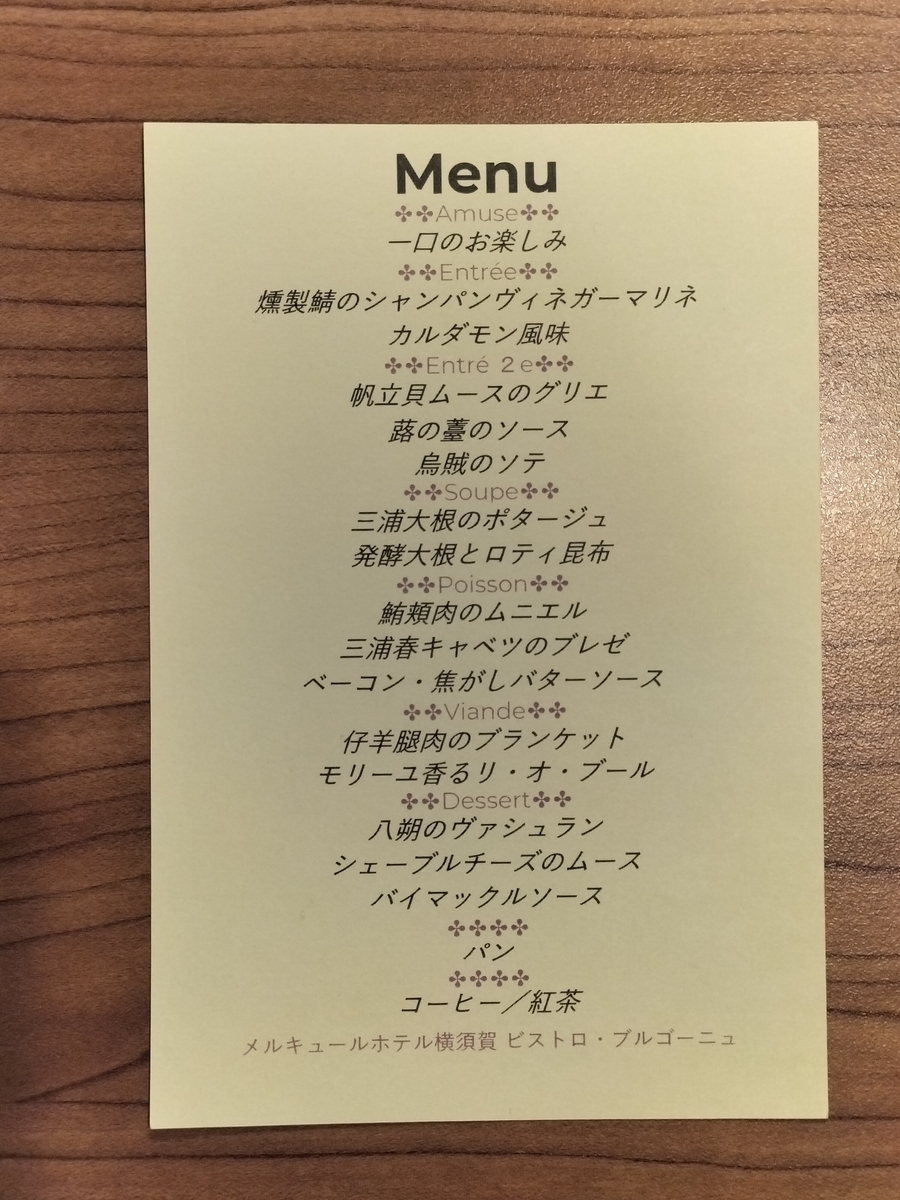 Menu
✤✤Amuse✤✤
一口のお楽しみ
✤✤Entrée✤✤
燻製鯖のシャンパンヴィネガーマリネ
カルダモン風味
✤✤Entré ２e✤✤
帆立貝ムースのグリエ
蕗の薹のソース
烏賊のソテ
✤✤Soupe✤✤
三浦大根のポタージュ
発酵大根とロティ昆布
✤✤Poisson✤✤
鮪頬肉のムニエル
三浦春キャベツのブレゼ
ベーコン・焦がしバターソース
✤✤Viande✤✤
仔羊腿肉のブランケット
モリーユ香るリ・オ・ブール
✤✤Dessert✤✤
八朔のヴァシュラン
シェーブルチーズのムース
バイマックルソース
✤✤✤✤
パン
✤✤✤✤
コーヒー／紅茶
メルキュールホテル横須賀 ビストロ・ブルゴーニュ